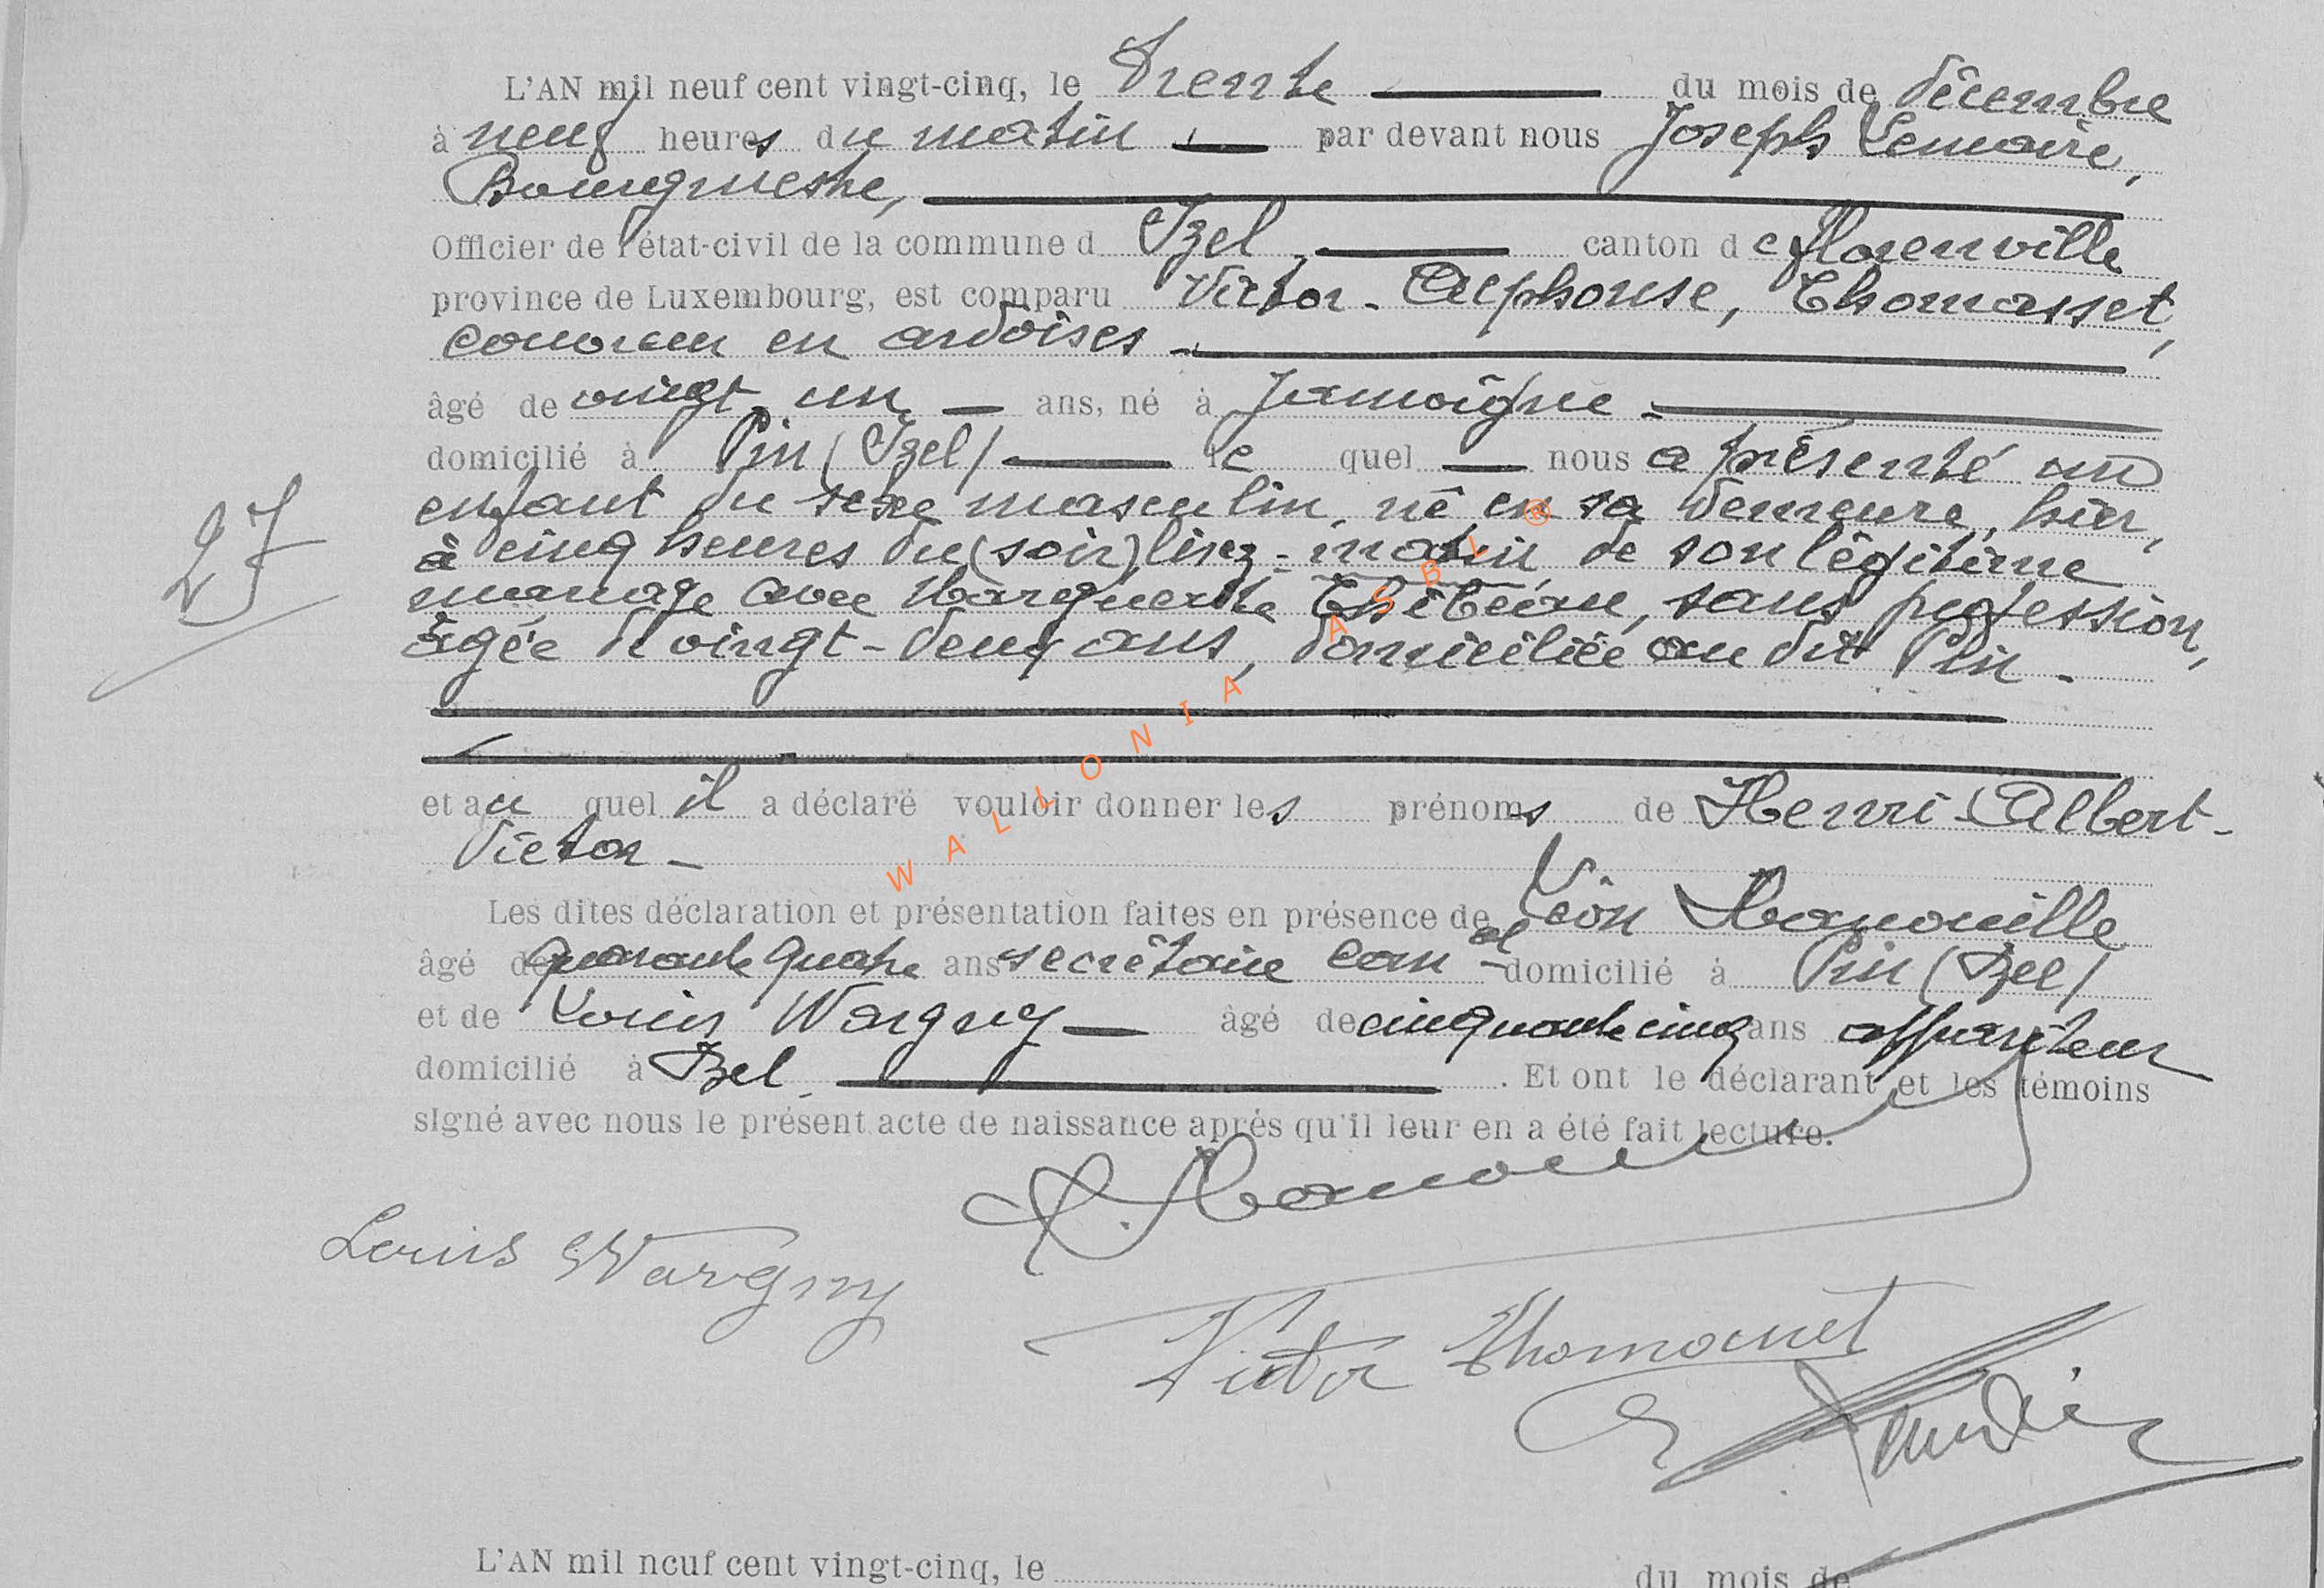 L'AN mil neuf cent vingt-cinq, le Trente du mois de décembre
à neuf heures du matin par devant nous Joseph Lemaire,
Bourgmestre,
Officier de l'état-civil de la commune d Izel, canton de Florenville
province de Luxembourg, est comparu Victor-Alphonse, Thomasset,
couvreur en ardoises
âgé de vingt un ans, né à Jamoigne
domicilié à Pin (Izel) le quel nous a présenté un
enfant du sexe masculin, né en sa demeure, hier,
à cinq heures du (soir) lisez - matin, de son légitime
27
mariage avec Marguerite Thibeau, sans profession,
âgée d vingt-deux ans, domiciliée au dit Pin -
et au quel il a déclaré vouloir donner les prénoms de Henri-Albert-
Victor -
Les dites déclaration et présentation faites en présence de Léon
âgé de quarante quatre ans secrétaire com al domicilié à Pin (Izel)
et de Louis Wargny âgé de cinquante cinq ans appariteur
domicilié à Izel . Et ont le déclarant et les témoins
signé avec nous le présent acte de naissance après qu'il leur en a été fait lecture.
Louis Wargny
Victor Thomasset
WALLONIA ASBL ®
L'AN mil neuf cent vingt-cinq, le du mois de